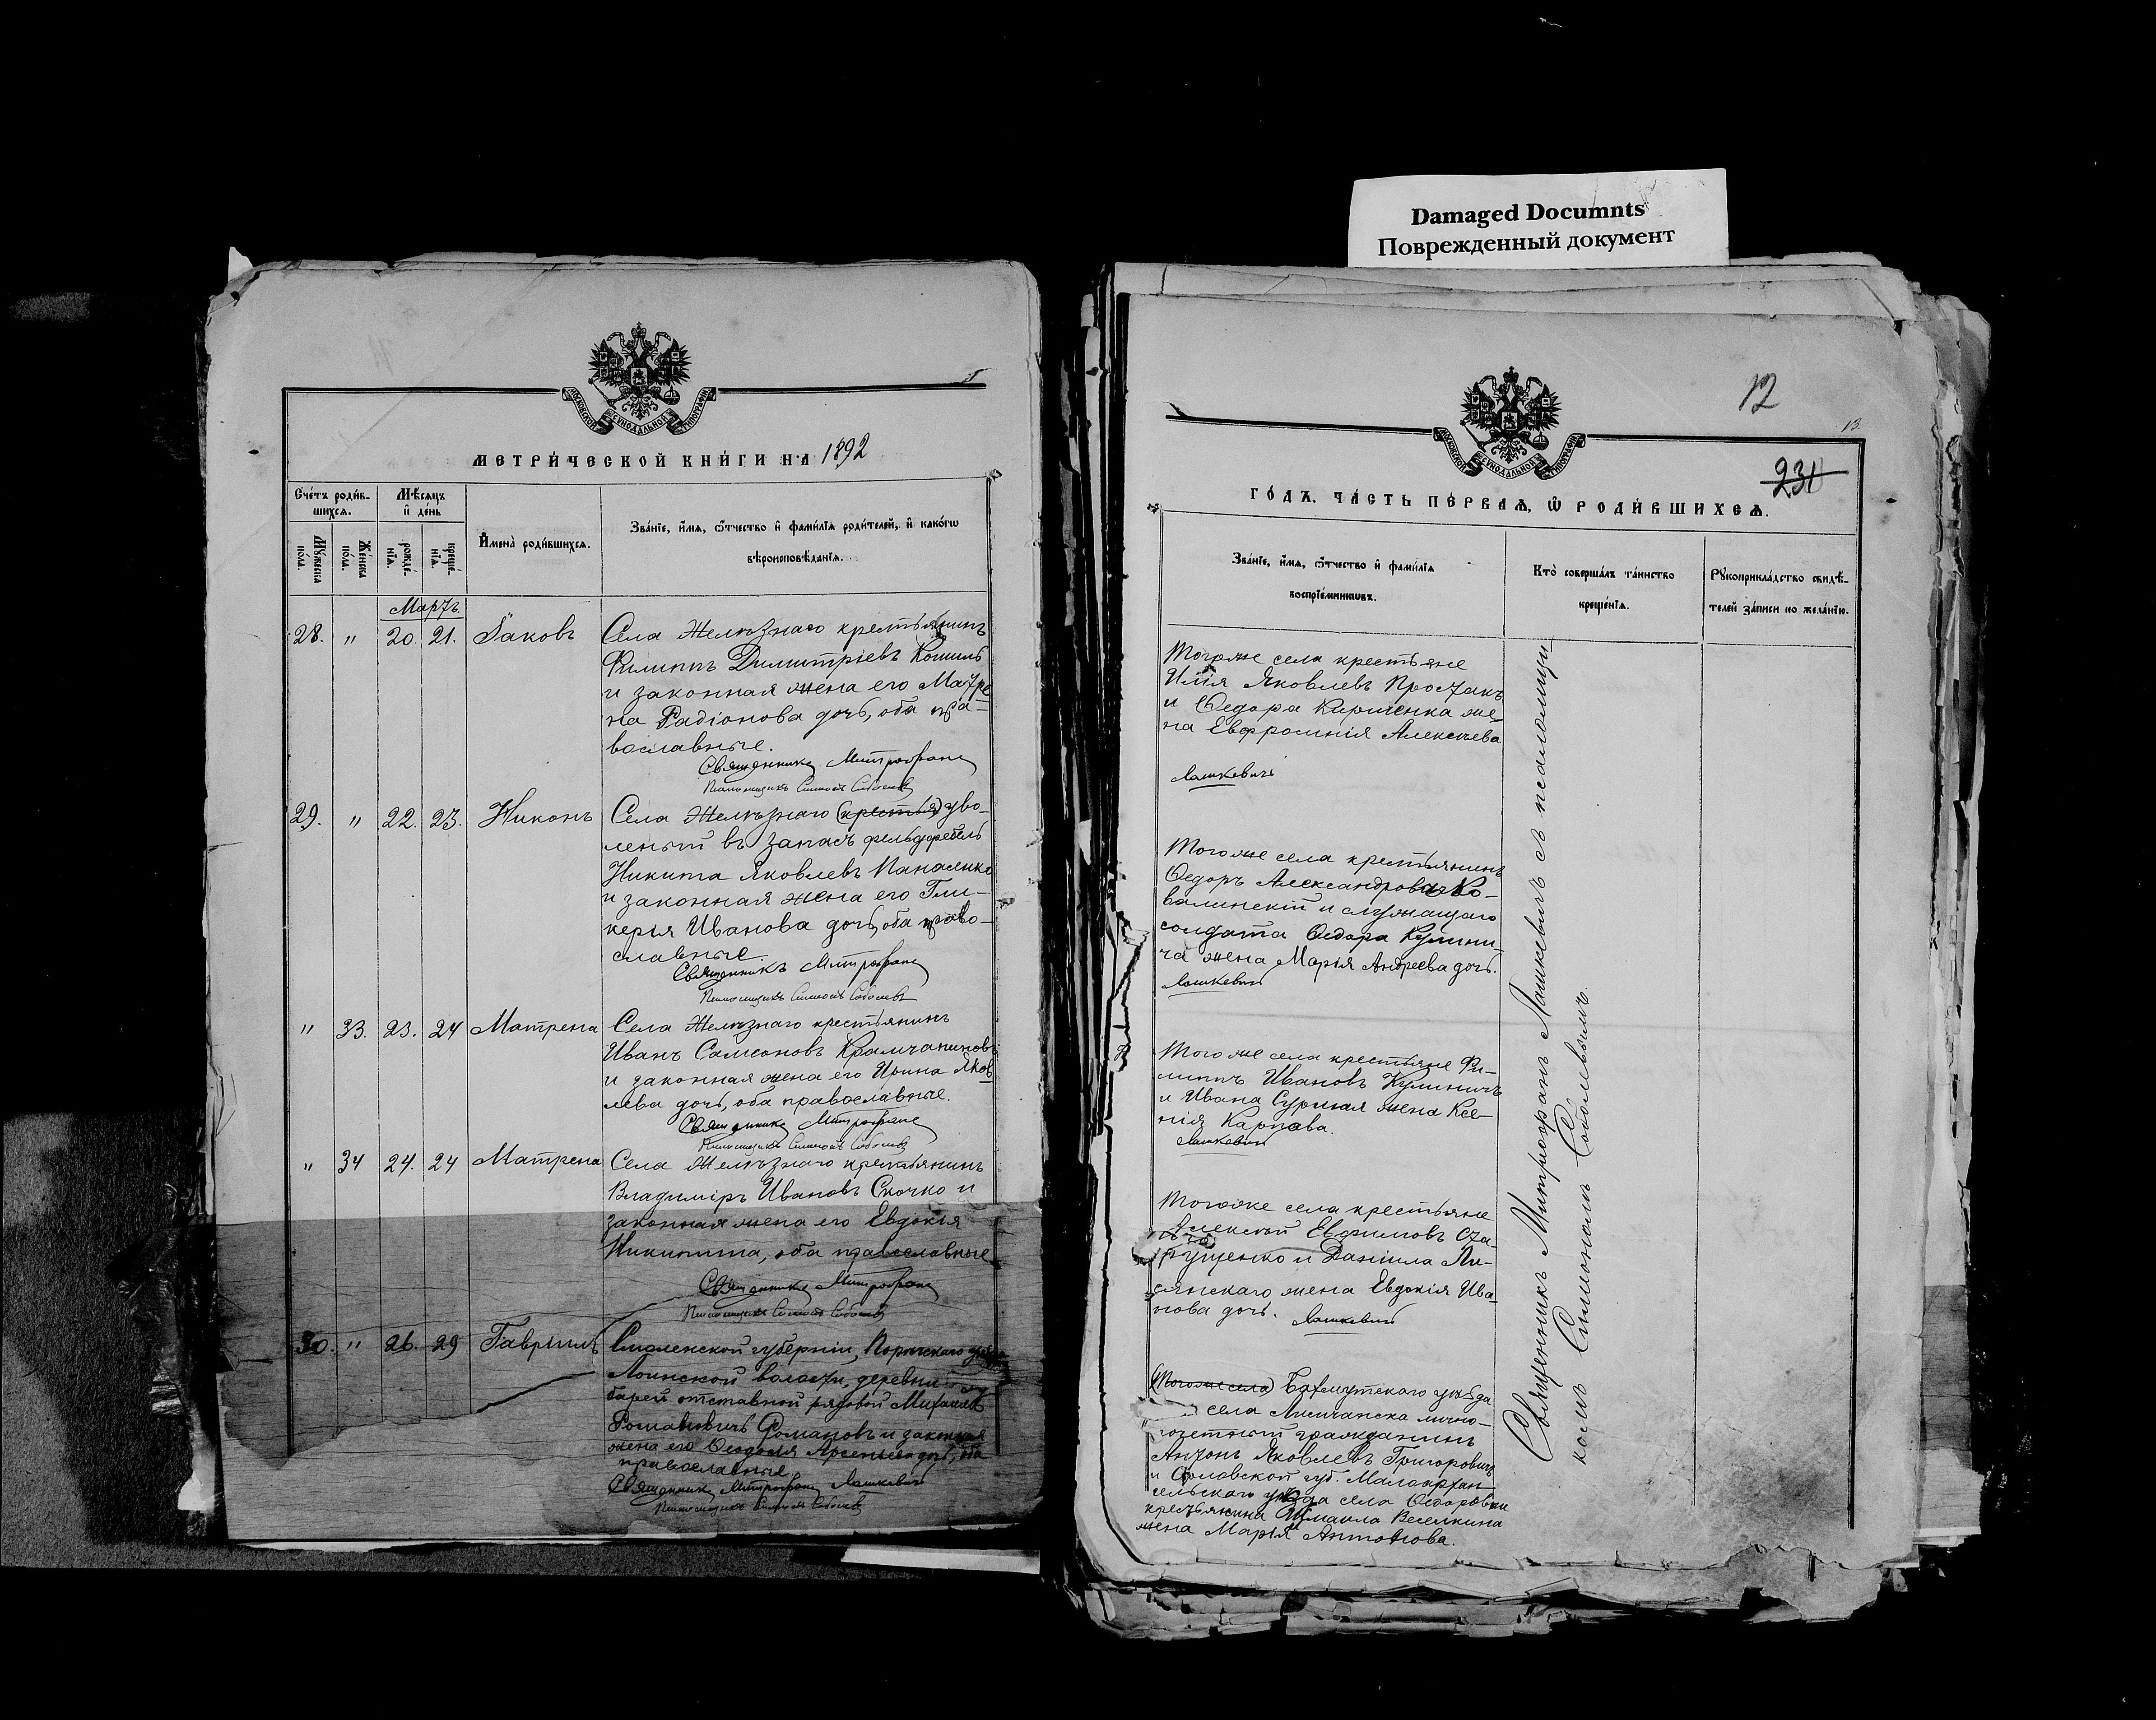 Damaged Documnts
Поврежденный документ
МОСКОВСКОЙ СѴНОДАЛЬНОЙ ТИПОГРАФІИ
МЕТРИ́ЧЕСКОЙ КНИ́ГИ НА 1892
Сче́тъ роди́в-
шихсѧ.
Мѣ́сѧцъ
и҆ де́нь
Мꙋ́жеска по́ла.
Же́нска по́ла.
рожде́-
нїѧ.
креще́-
нїѧ.
И҆мена̀ роди́вшихсѧ.
Зва́нїе, и҆́мѧ, ѻ҆́тчество и҆ фами́лїѧ роди́телей, и҆ како́гѡ
вѣроисповѣ́данїѧ.
Мартъ.
28. " 20. 21. Іаковъ
Села Желѣзнаго крестьянинъ
Филиппъ Димитріевъ Кошиль
и законная жена его Матре
на Радіонова дочь, оба пра-
вославные.
Священникъ Митрофанъ
Псаломщикъ Симеонъ Соболевъ
29. " 22. 23. Никонъ
Села Желѣзнаго (крестья) уво-
леный въ запасъ фельдфебель
Никита Яковлевъ Панасенко
и законная жена его Гли-
керія Иванова дочь, оба право-
славные.
Священникъ Митрофанъ
Псаломщикъ Симеонъ Соболевъ
" 33. 23. 24 Матрена
Села Желѣзнаго крестьянинъ
Иванъ Самсоновъ Крамчаниновъ
и законная жена его Ирина Яков
лева дочь, оба православные.
Священникъ Митрофанъ
Псаломщикъ Симеонъ Соболевъ
" 34 24. 24 Матрена
Села Желѣзнаго крестьянинъ
Владиміръ Ивановъ Скочко и
законная жена его Евдокія
Никитина, оба православные
Священникъ Митрофанъ
Псаломщикъ Симеонъ Соболевъ
30. " 26. 29 Гавріилъ
Смоленской губерніи, Порѣчскаго уѣзда
Лоинской волости, деревни
отставной рядовой Михаилъ
Романовичъ Романовъ и законная
жена его Ѳеодосія Арсеньева дочь, оба
православные
Священникъ Митрофанъ Лашкевичъ
Псаломщикъ Симеонъ Соболевъ
12
13.
МОСКОВСКОЙ СѴНОДАЛЬНОЙ ТИПОГРАФІИ
231
ГО́ДЪ, ЧА́СТЬ ПЕ́РВАѦ, Ѡ҆ РОДИ́ВШИХСѦ.
Зва́нїе, и҆́мѧ, ѻ҆́тчество и҆ фами́лїѧ
воспрїе́мникωвъ.
Кто̀ соверша́лъ та́инство
креще́нїѧ.
Рꙋкоприкла́дство свидѣ́-
телей за́писи по жела́нїю.
Тогоже села крестьяне
Илія Яковлевъ Простакъ
и Ѳедора Кириченка же-
на Евфросинія Алексѣева
Лашкевичъ
Тогоже села крестьянинъ
Ѳедоръ Александровъ Ко-
валинскій и служащаго
солдата Ѳедора Кулини-
ча жена Марія Андреева дочь.
Лашкевичъ
Тогоже села крестьяне Фи-
липпъ Ивановъ Кулиничъ
и Ивана жена Ксе-
нія Карпова.
Лашкевичъ
Тогоже села крестьяне
Алексѣй Евфимовъ Ста-
рущенко и Даніила Ли-
сянскаго жена Евдокія Ива-
нова дочь. Лашкевичъ
(Тогоже села) Бахмутскаго уѣзда
села Лисичанска лично-
почетный гражданинъ
Антонъ Яковлевъ Григоровичъ
и Орловской губ. Малоархан
гельскаго уѣзда села Ѳедоровки
крестьянина Измаила Веселкина
жена Марія Антонова.
Священникъ Митрофанъ Лашкевичъ съ псаломщи-
комъ Симеономъ Соболевымъ.